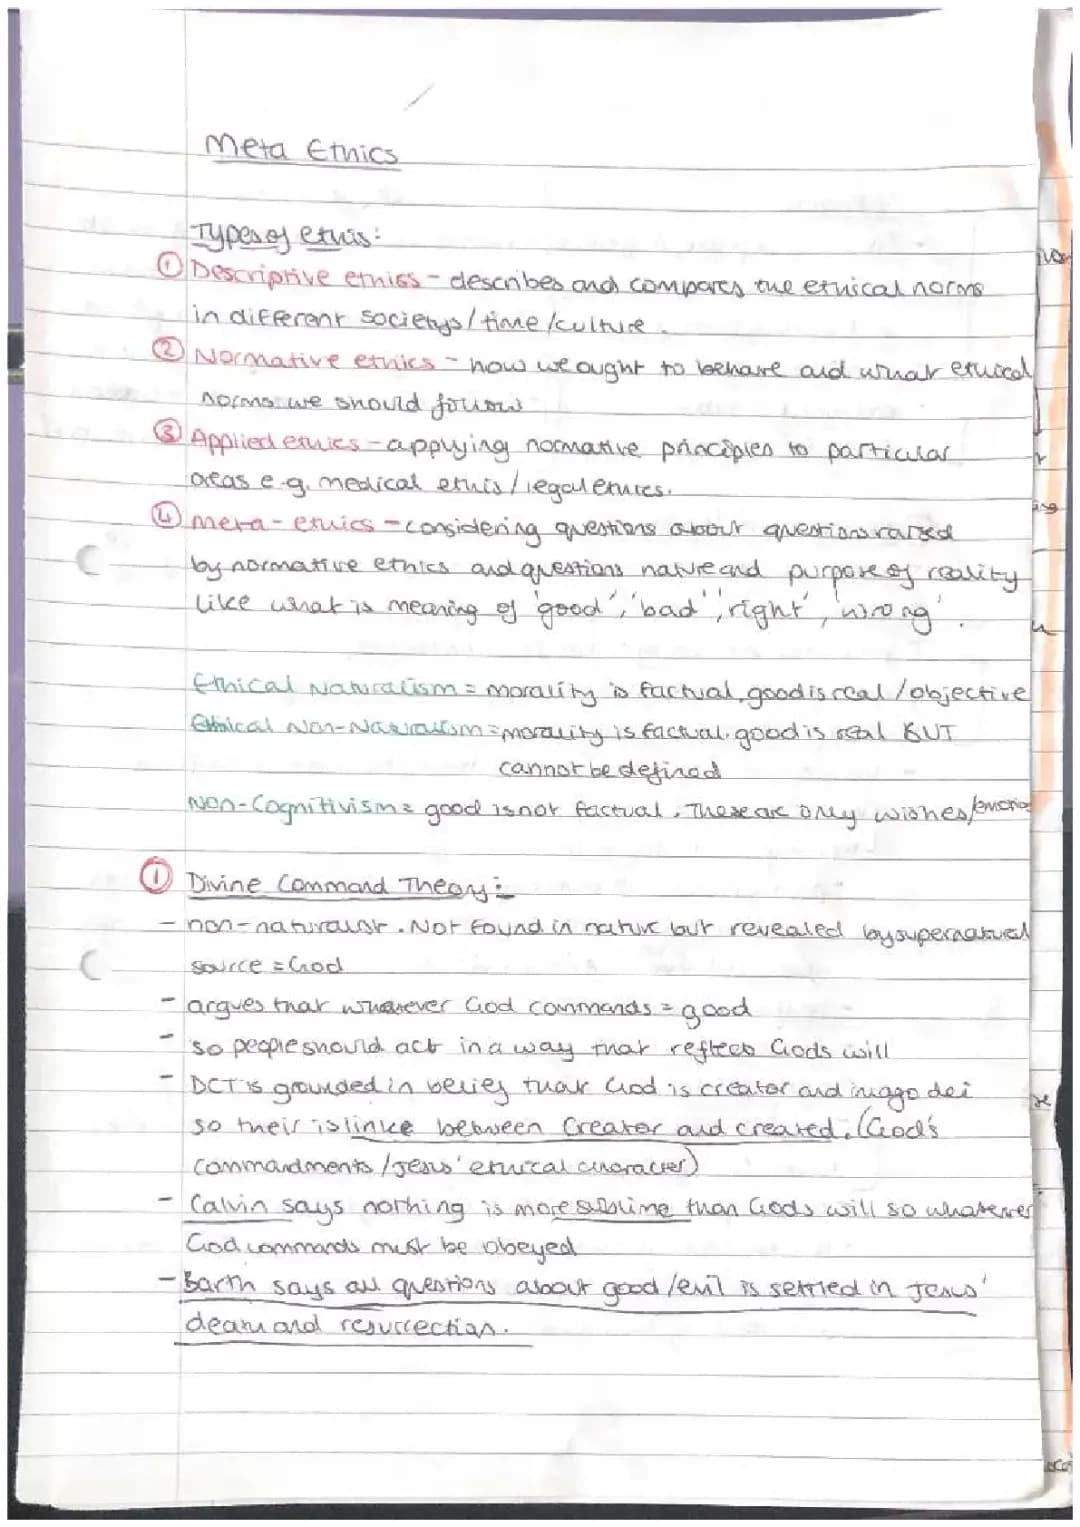 Meta Ethics
Types of ethis:
① Descriptive ethics - describes and compares the ethical norms
in different societys / time / culture.
② Normative ethics - how we ought to behave and what ethical
norms we should follow
③ Applied ethics - applying normative principles to particular
areas e.g. medical ethis / legal ethics.
④ meta-ethics - considering questions about questions raised
by normative ethics and questions nature and purpose of reality
like what is meaning of 'good', 'bad', 'right', 'wrong'.
Ethical Naturalism = morality is factual, good is real / objective
Ethical Non-Naturalism = morality is factual. good is real BUT
cannot be defined
Non-Cognitivism = good is not factual. These are only wishes/
① Divine Command Theory:
- non-naturalist. Not found in nature but revealed by supernatural
source = God
- argues that whatever God commands = good
- so people should act in a way that reflects Gods will
- DCT is grounded in belief that God is creator and imago dei
so their is linke between Creator and created. (God's
commandments / Jesus' ethical character)
- Calvin says nothing is more sublime than Gods will so whatever
God commands must be obeyed
- Barth says all questions about good / evil is settled in Jesus'
death and resurrection.